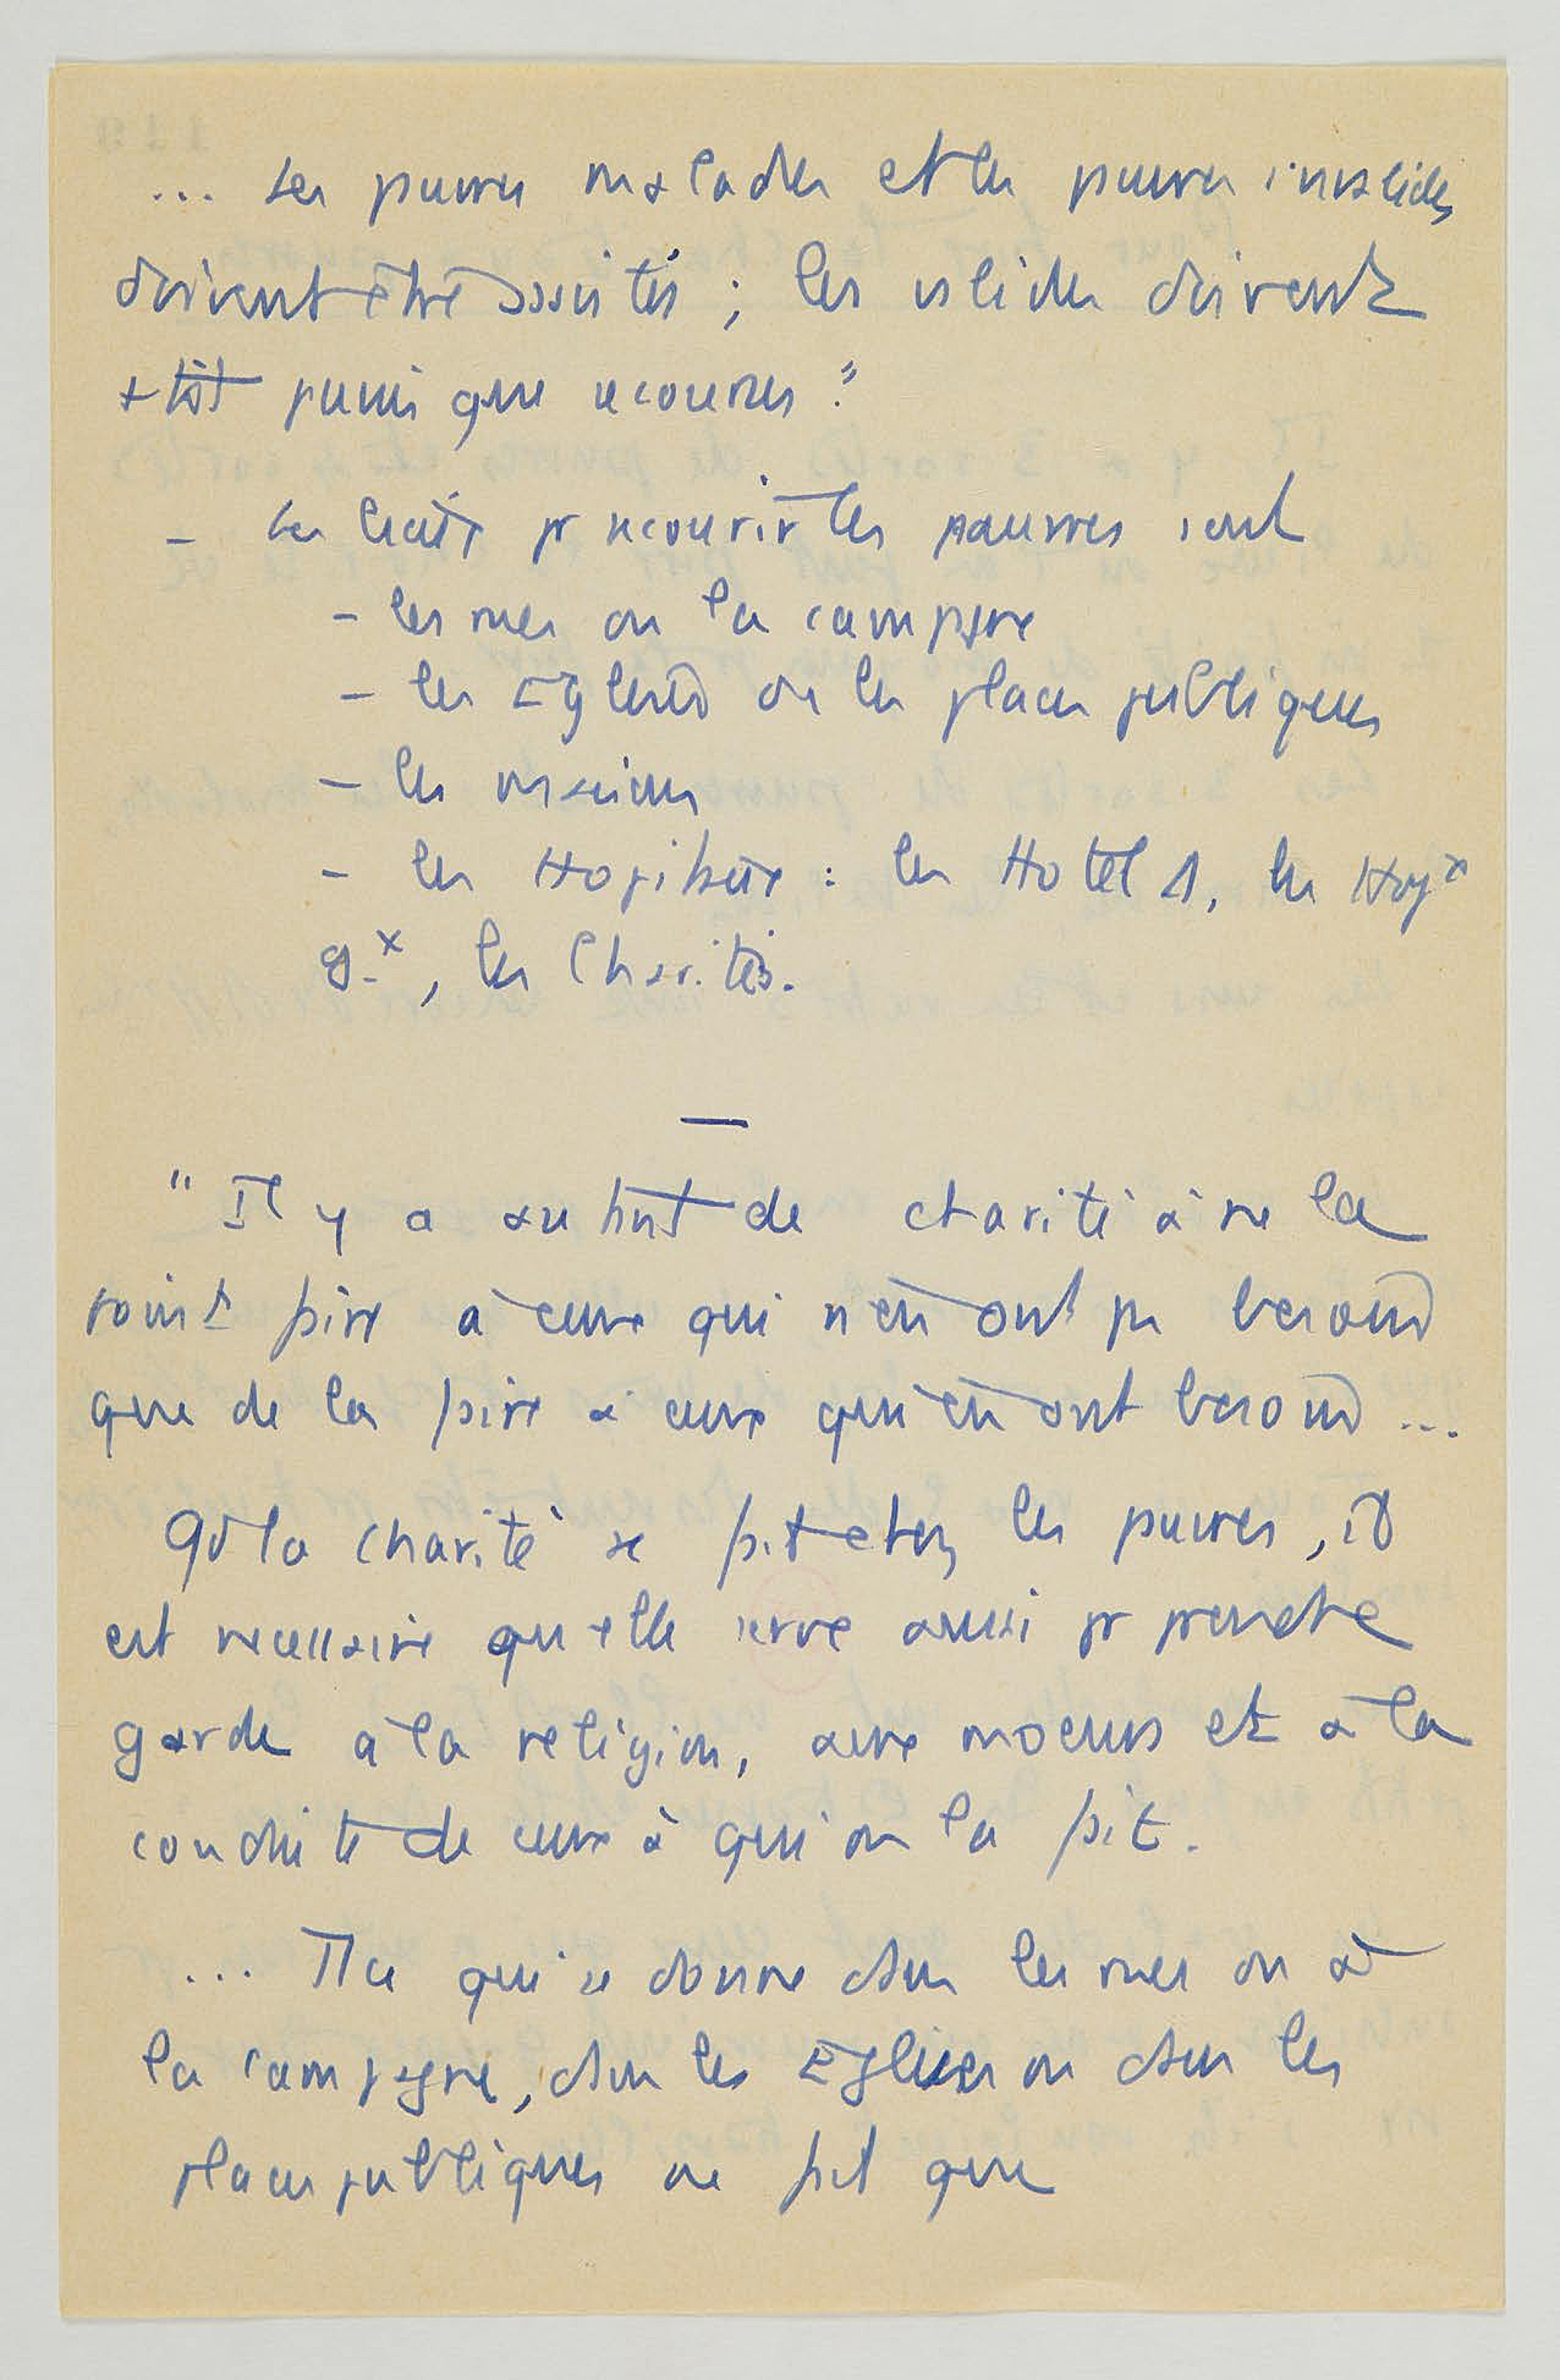 ... Les pauvres malades et les pauvres invalides
doivent être assistés ; les valides doivent
+ tôt punis que secourus."
- Les lieux pr secourir les pauvres sont
- les rues ou la campagne
- les Eglises ou les places publiques
- les maisons
- les Hopitaux : les Hotel D, les Hopx
g.x, les Charités.
—
" Il y a autant de charité à ne la
point faire à ceux qui n'en ont pas besoin
que de la faire à ceux qui en ont besoin ...
Qd la charité se fait chez les pauvres, il
est necessaire qu'elle serve aussi pr prendre
garde à la religion, aux moeurs et à la
conduite de ceux à qui on la fait.
... Tt ce qui se donne dans les rues ou à
la campagne, dans les Eglises ou dans les
places publiques ne fait que